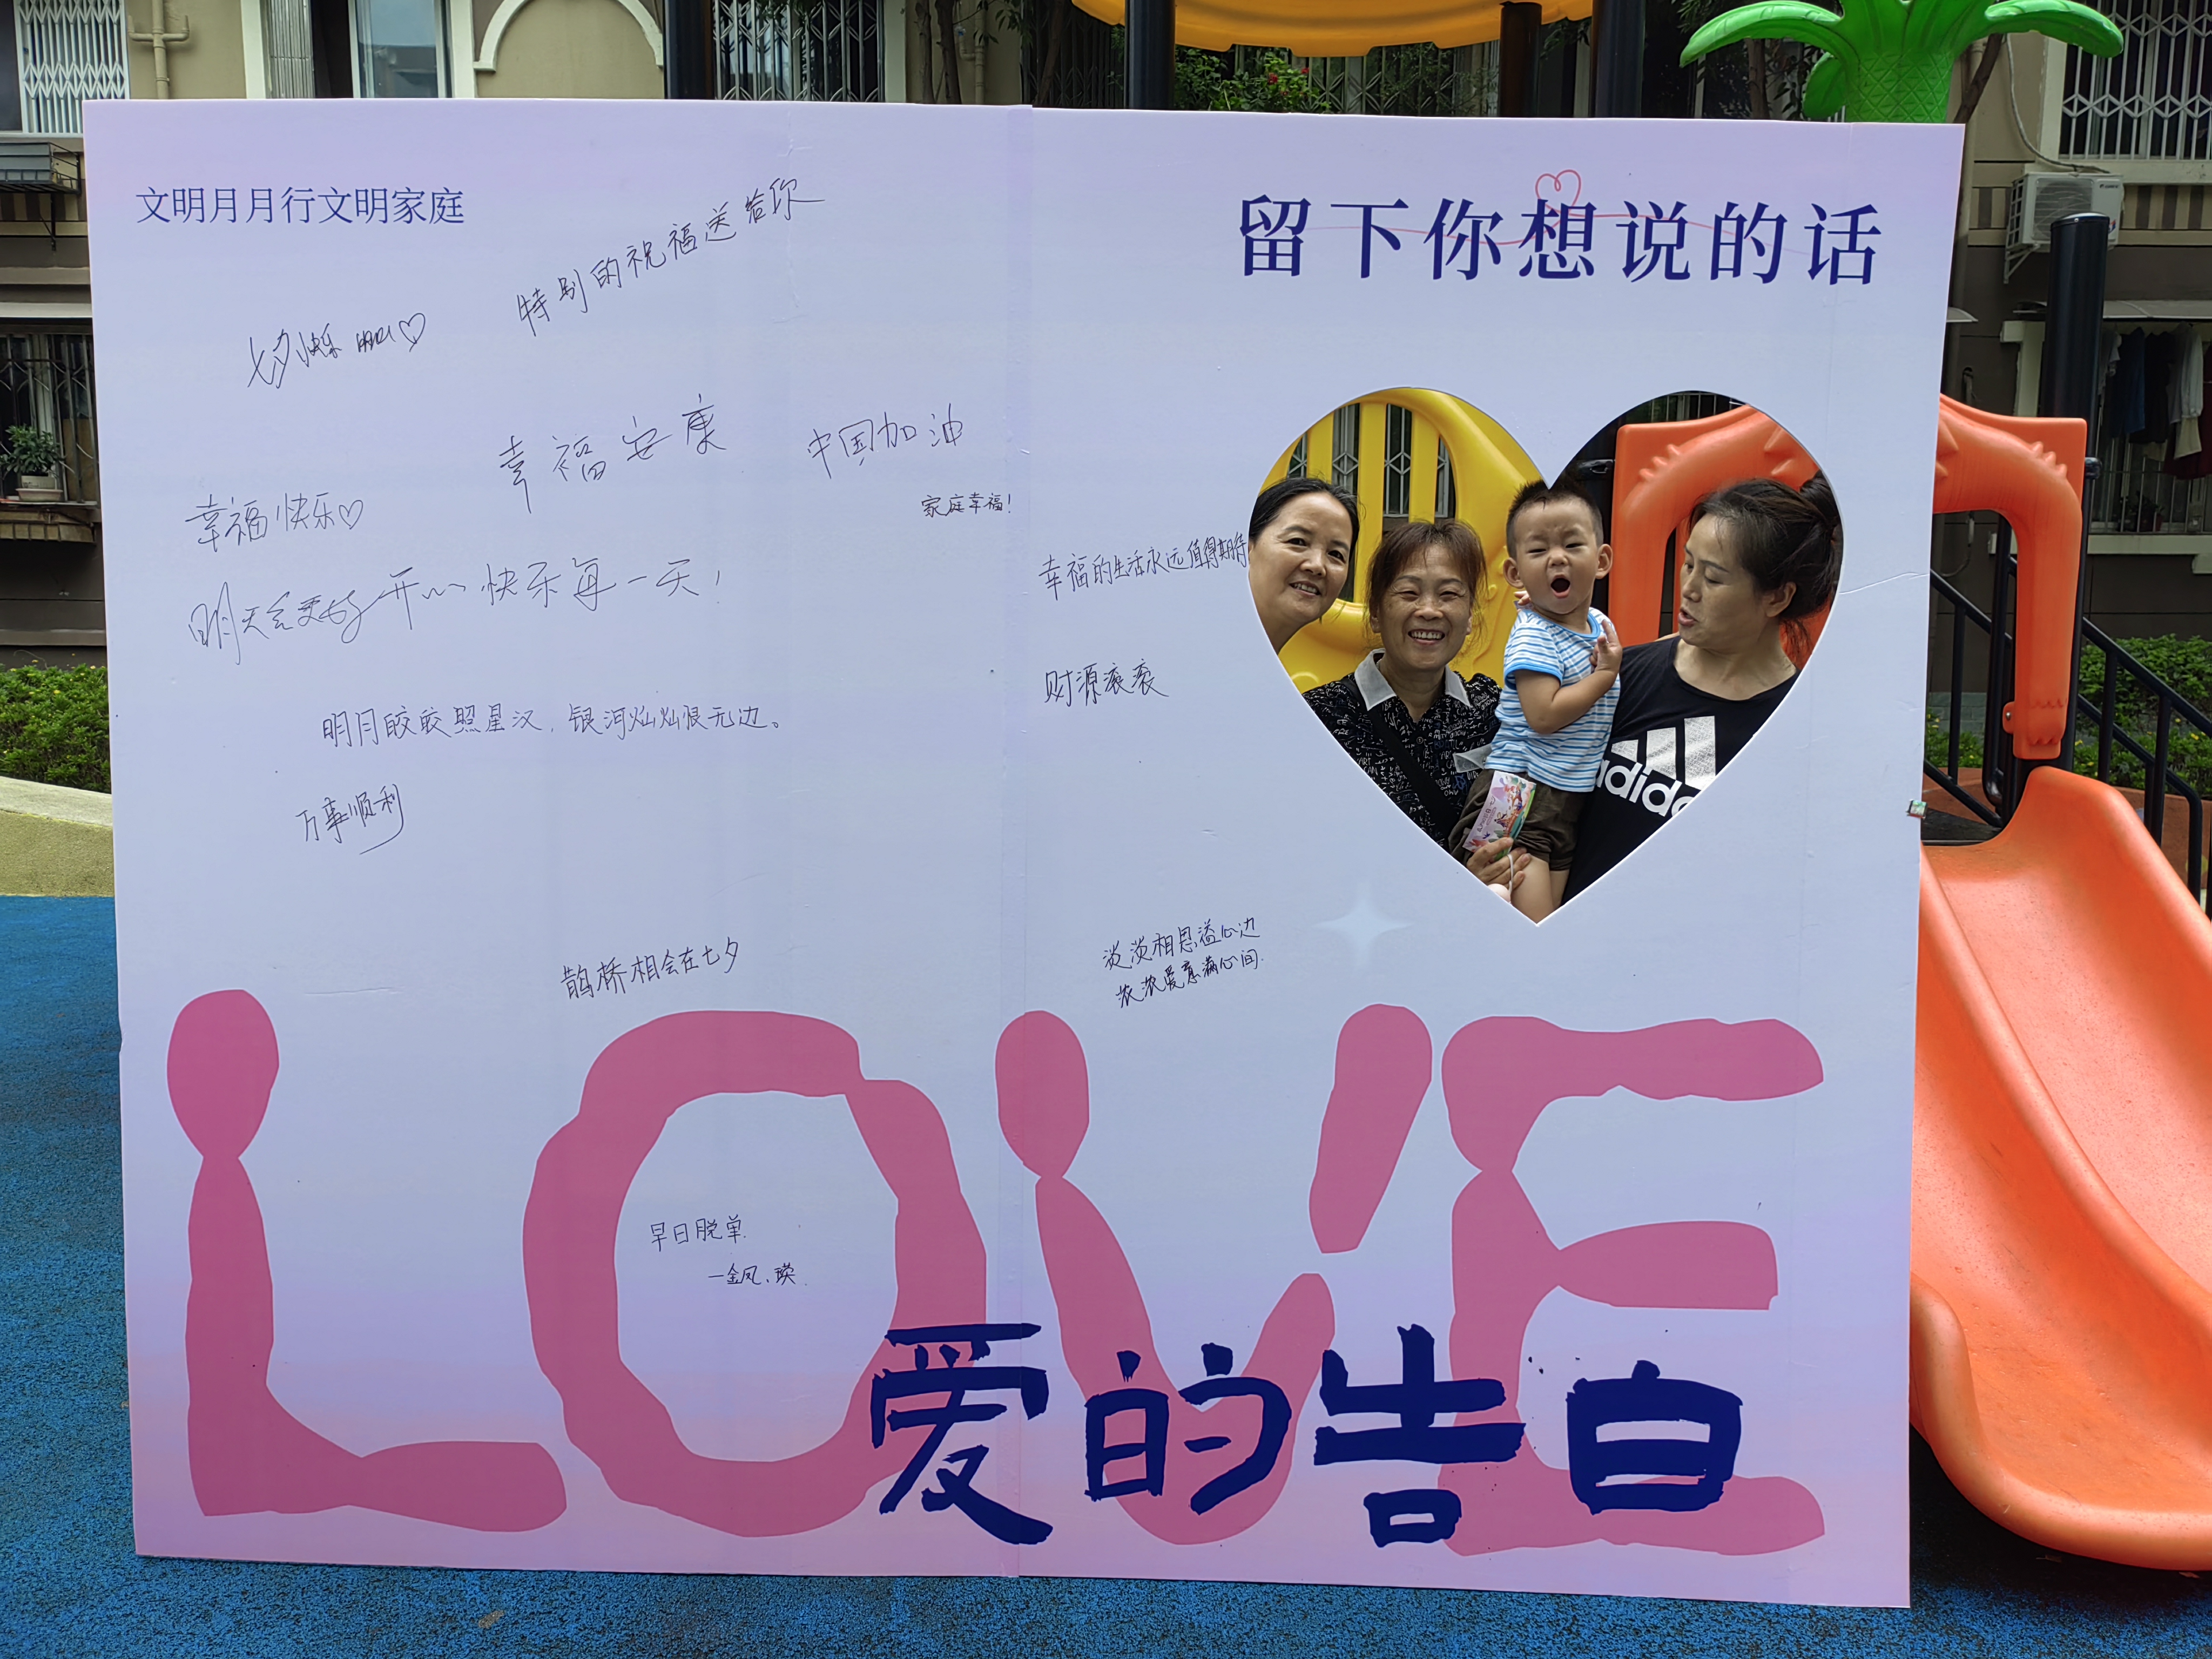 文明月月行文明家庭
留下你想说的话
特别的祝福送给你
七夕快乐
幸福安康
中国加油
幸福快乐♡
家庭幸福!
幸福的生活永远值得期待
明天会更好 开心快乐每一天!
财源滚滚
adidas
明月皎皎照星汉,银河灿灿恨无边。
万事顺利
鹊桥相会在七夕
淡淡相思溢心边
浓浓爱意满心间.
LOVE
早日脱单.
—金凤、瑛.
爱的告白